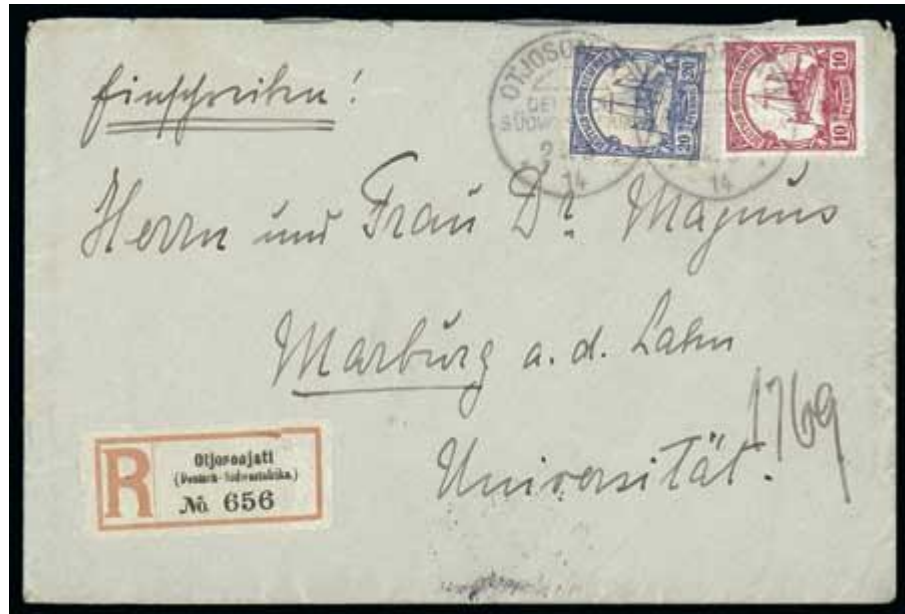 Einschreiben!
OTJOSO
SÜDW
2
14
14
20
20 PFENNIG
10
10 PFENNIG
Herrn und Frau Dr. Magnus
Marburg a. d. Lahn
Universität.
1769
R
Otjosonjati
(Deutsch-Südwestafrika.)
No 656